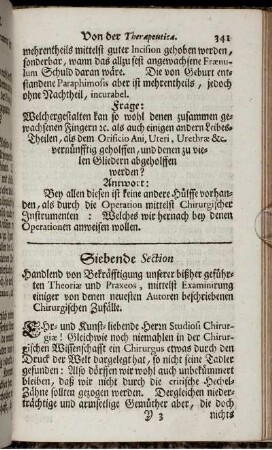 Von der Therapeutica. 341
mehrentheils mittelst guter Incision gehoben werden,
sonderbar, wann das allzu fest angewachsene Frænu-
lum Schuld daran wäre. Die von Geburt ent-
standene Paraphimosis aber ist mehrentheils, jedoch
ohne Nachtheil, incurabel.
Frage:
Welchergestalten kan so wohl denen zusammen ge-
wachsenen Fingern ꝛc. als auch einigen andern Leibes-
Theilen, als dem Orificio Ani, Uteri, Urethræ &c.
vernünfftig geholffen, und denen zu vie-
len Gliedern abgeholffen
werden?
Antwort:
Bey allen diesen ist keine andere Hülffe vorhan-
den, als durch die Operation mittelst Chirurgischer
Instrumenten: Welches wir hernach bey denen
Operationen anweisen wollen.
Siebende Section
Handlend von Bekräfftigung unserer bißher geführ-
ten Theoriæ und Praxeos, mittelst Examinirung
einiger von denen neuesten Autoren beschriebenen
Chirurgischen Zufälle.
Ehr- und Kunst-liebende Herrn Studiosi Chirur-
giæ! Gleichwie noch niemahlen in der Chirur-
gischen Wissenschafft ein Chirurgus etwas durch den
Druck der Welt dargelegt hat, so nicht seine Tadler
gefunden: Also dörffen wir wohl auch unbekümmert
bleiben, daß wir nicht durch die critische Hechel-
Zähne sollten gezogen werden. Dergleichen nieder-
trächtige und armseelige Gemüther aber, die doch
Y 3 nichts